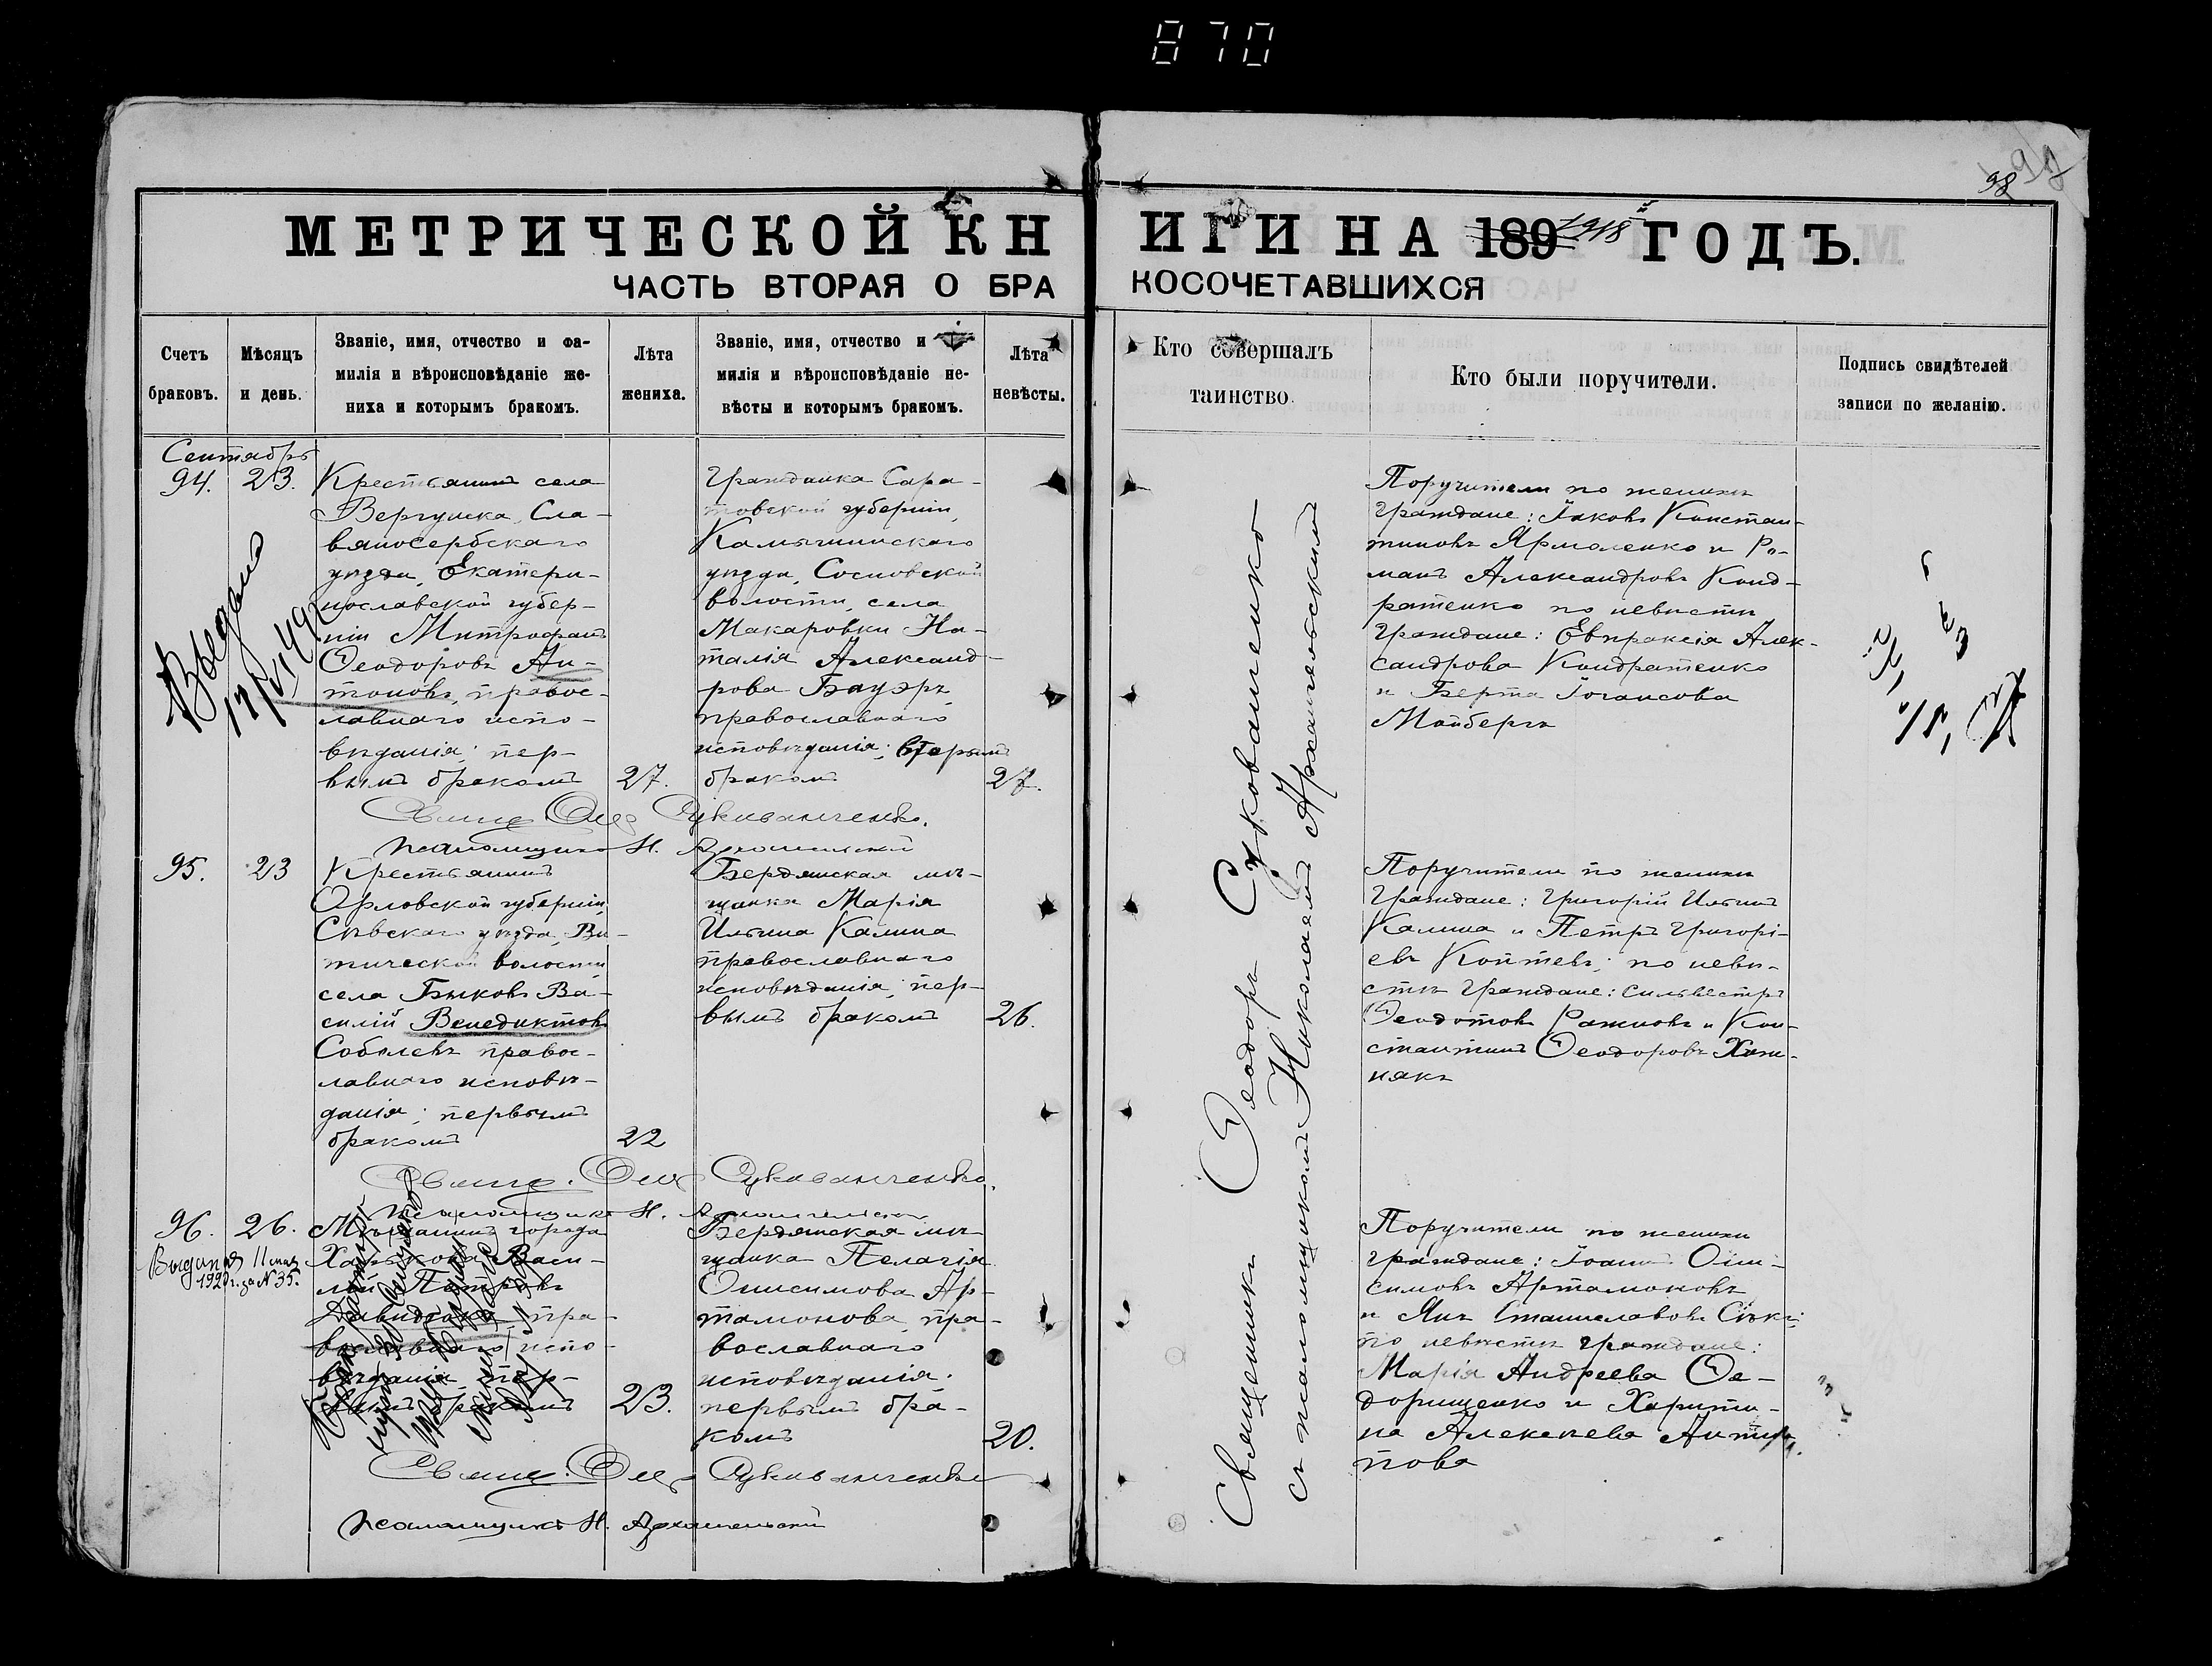 870
98
МЕТРИЧЕСКОЙ КН
ИГИ НА 189 1918й ГОДЪ.
ЧАСТЬ ВТОРАЯ О БРА
КОСОЧЕТАВШИХСЯ
Счетъ браковъ.
Мѣсяцъ и день.
Званіе, имя, отчество и фа-
милія и вѣроисповѣданіе же-
ниха и которымъ бракомъ.
Лѣта
жениха.
Званіе, имя, отчество и
милія и вѣроисповѣданіе не-
вѣсты и которымъ бракомъ.
Лѣта
невѣсты.
Кто совершалъ
таинство.
Кто были поручители.
Подпись свидѣтелей
записи по желанію.
Сентябрь
94.
23.
Крестьянинъ села
Вергунка, Сла-
вяносербскаго
уѣзда, Екатери-
нославской губер-
ніи Митрофанъ
Ѳеодоровъ Ан-
тоновъ, правос-
лавнаго испо-
вѣданія; пер-
вымъ бракомъ
27.
Гражданка Сара-
товской губерніи,
Камышинскаго
уѣзда, Сосновской
волости, села
Макаровки На-
талія Александ-
рова Бауэръ
православнаго
исповѣданія; вторымъ
бракомъ
27.
Поручители по женихѣ
Граждане: Іаковъ Констан-
тиновъ Ярмоленко и Ро-
манъ Александровъ Конд-
ратенко по невѣстѣ
Граждане: Евпраксія Алек-
сандрова Кондратенко
и Берта Іогансова
Майбергъ
Выдана
Свящ. Ѳеод. Сукованченко.
псаломщикъ Н. Архангельскій
95.
23
Крестьянинъ
Орловской губерніи,
Сѣвскаго уѣзда,
волости
села Быковъ Ва-
силій Венедиктовъ
Соболевъ правос-
лавнаго исповѣ-
данія; первымъ
бракомъ
22
Бердянская мѣ-
щанка Марія
Ильина Калина
православнаго
исповѣданія, пер-
вымъ бракомъ
26.
Поручители по женихѣ
Граждане: Григорій Ильинъ
Калина и Петръ Григорі-
евъ Коптевъ; по невѣ-
стѣ Граждане: Сильвестръ
Ѳеодотовъ Ражновъ и Кон-
стантинъ Ѳеодоровъ Хиж-
някъ
Свящ. Ѳеод. Сукованченко.
псаломщикъ Н. Архангельскій
96.
26.
Выдана 11 мая
192 г. за №35.
Мѣщанинъ города
Харькова Васи-
лій Петровъ
Давиденко, пра-
вославнаго испо-
вѣданія, пер-
вымъ бракомъ
23.
Бердянская мѣ-
щанка Пелагія
Онисимова Ар-
тамонова, пра-
вославнаго
исповѣданія.
первымъ бра-
комъ
20.
Поручители по женихѣ
граждане: Іоаннъ Они-
симовъ Артамоновъ
и Янъ Станиславовъ
по невѣстѣ граждане:
Марія Андреева Ѳе-
дорищенко и Харити-
на Алексѣева Анти-
пова
Свящ. Ѳеод. Сукованченко
псаломщикъ Н. Архангельскій
Священникъ Ѳеодоръ Сукованченко
съ псаломщикомъ Николаемъ Архангельскимъ